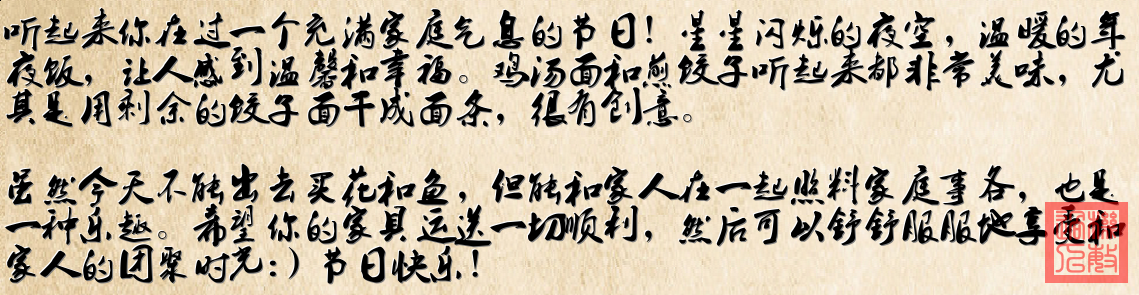 听起来你在过一个充满家庭气息的节日！星星闪烁的夜空，温暖的年
夜饭，让人感到温馨和幸福。鸡汤面和煎饺子听起来都非常美味，尤
其是用剩余的饺子面干成面条，很有创意。
虽然今天不能出去买花和鱼，但能和家人在一起照料家庭事务，也是
一种乐趣。希望你的家具运送一切顺利，然后可以舒舒服服地享受和
家人的团聚时光:）节日快乐！